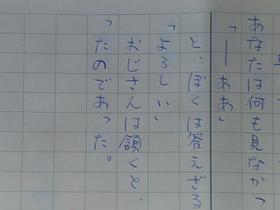 あなたは何も見なかっ
「――ああ」
と、ぼくは答えざる
「よろしい」
おじさんは頷くと、
たのであった。